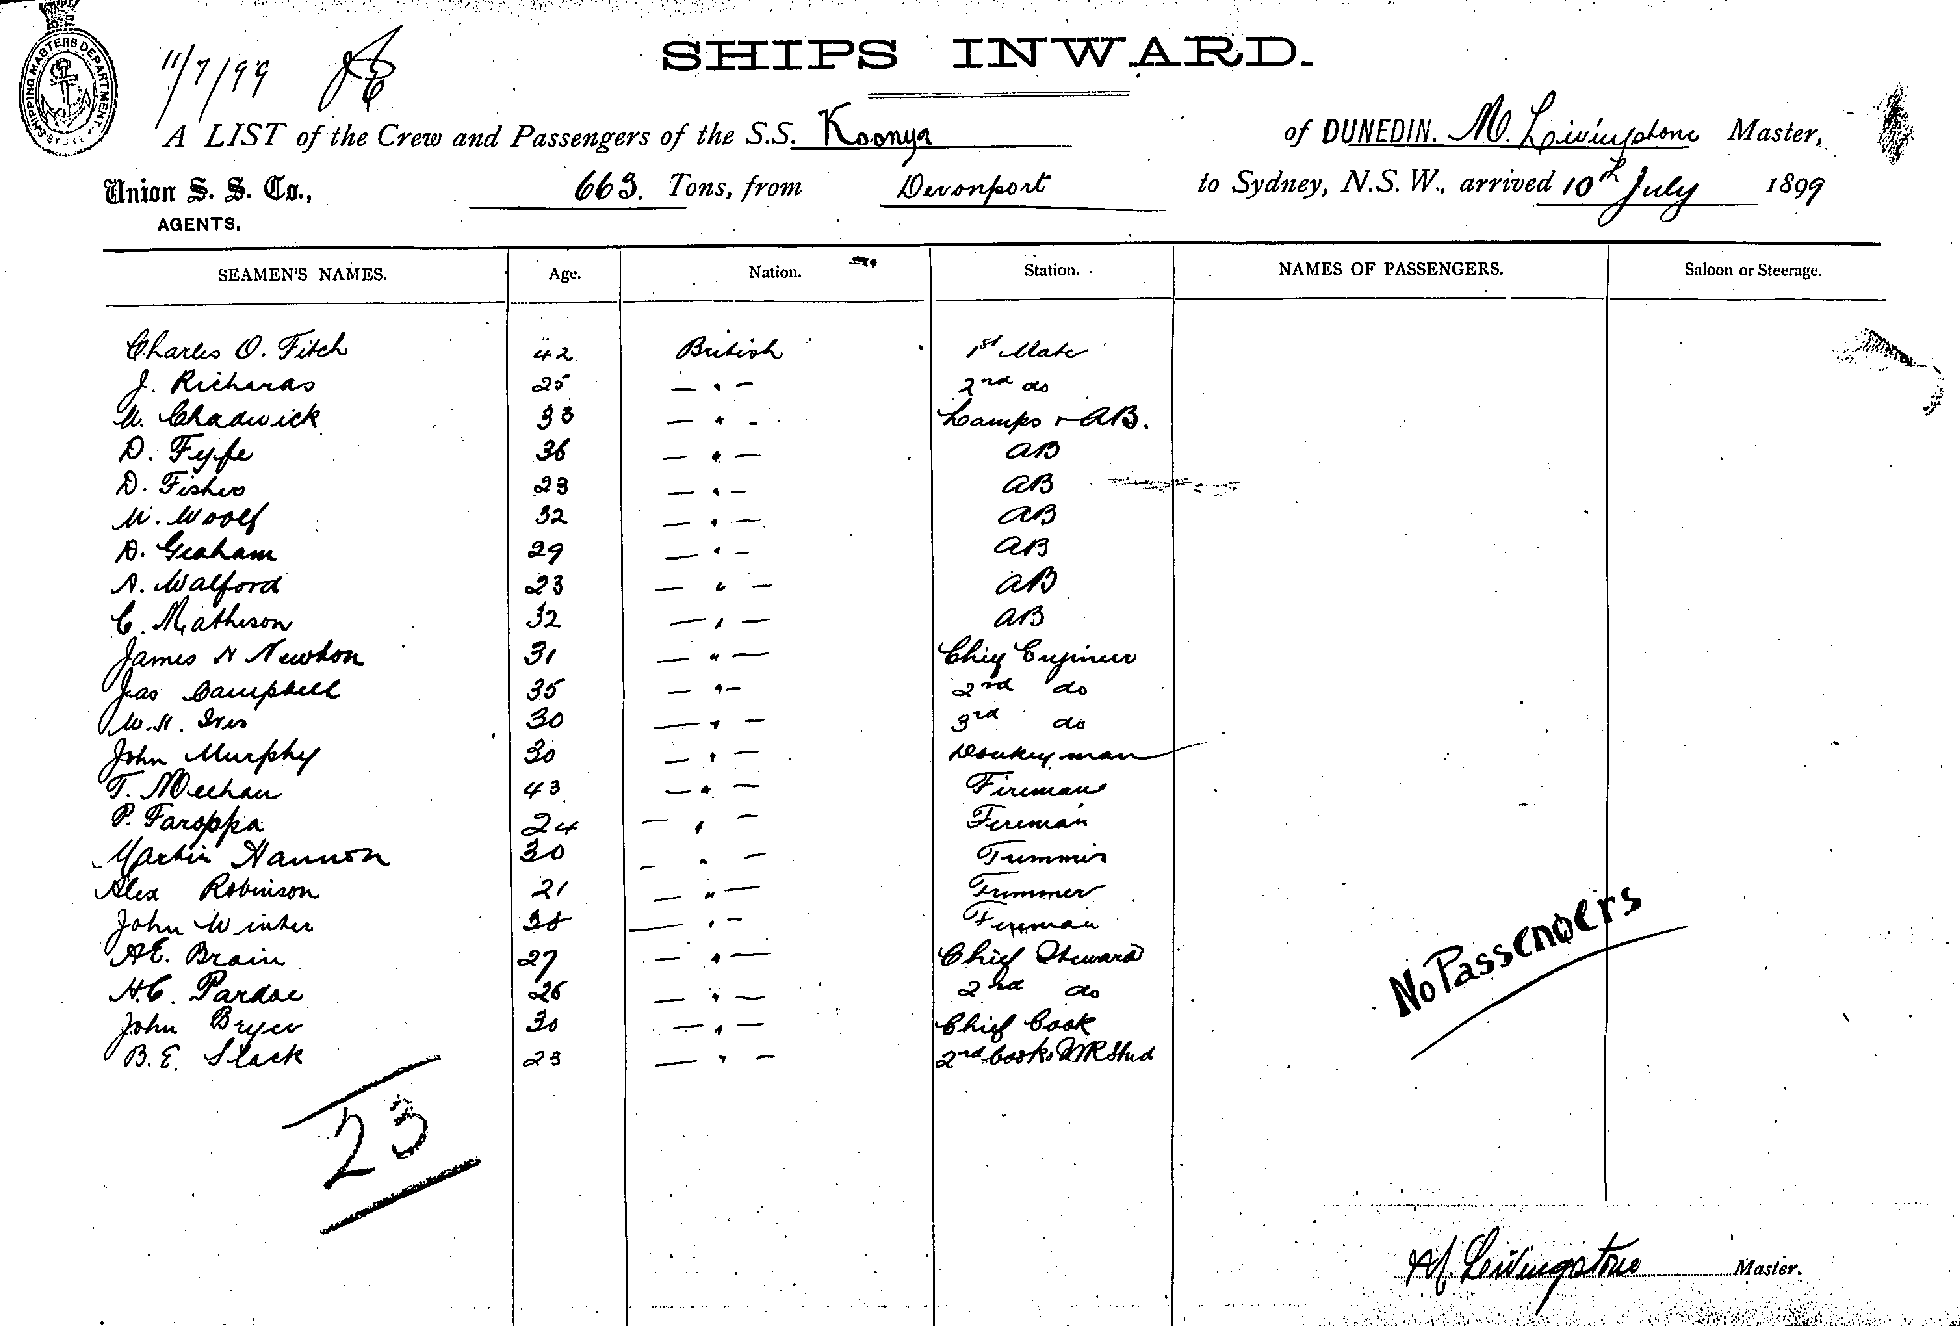 SHIPPING MASTERS DEPARTMENT
11/7/99
SHIPS INWARD.
A LIST of the Crew and Passengers of the S.S. Koonya of DUNEDIN. M. Livingstone Master,
Union S. S. Co., 663. Tons, from Devonport to Sydney, N.S.W., arrived 10th July 1899
AGENTS.
SEAMEN'S NAMES. Age. Nation. Station. NAMES OF PASSENGERS. Saloon or Steerage.
Charles O. Fitch 42 British 1st Mate
J. Richards 25 — " — 2nd do
W. Chadwick 33 — " - Lamps & AB.
D. Fyfe 36 — " — AB
D. Fisher 23 — " — AB
W. Woolf 32 — " — AB
D. Graham 29 — " — AB
A. Walford 23 — " — AB
C. Matheson 32 — " — AB
James N Newton 31 — " — Chief Engineer
Jas Campbell 35 — " — 2nd do
W.H. 30 — " — 3rd do
John Murphy 30 — " — Donkeyman
T. Meehan 43 — " — Fireman
P. Faroppa 24 — " — Fireman
Martin Hannon 30 — " — Trimmer
Alex Robinson 21 — " — Trimmer
John Winter — " — Fireman
A.E. Brain 27 — " — Chief Steward
H.C. Pardoe 26 — " — 2nd do
John Bryer 30 — " — Chief Cook
B.E. Slack 23 — " — 2nd Cook & MR Stwd
No Passengers
23
M. Livingstone Master.